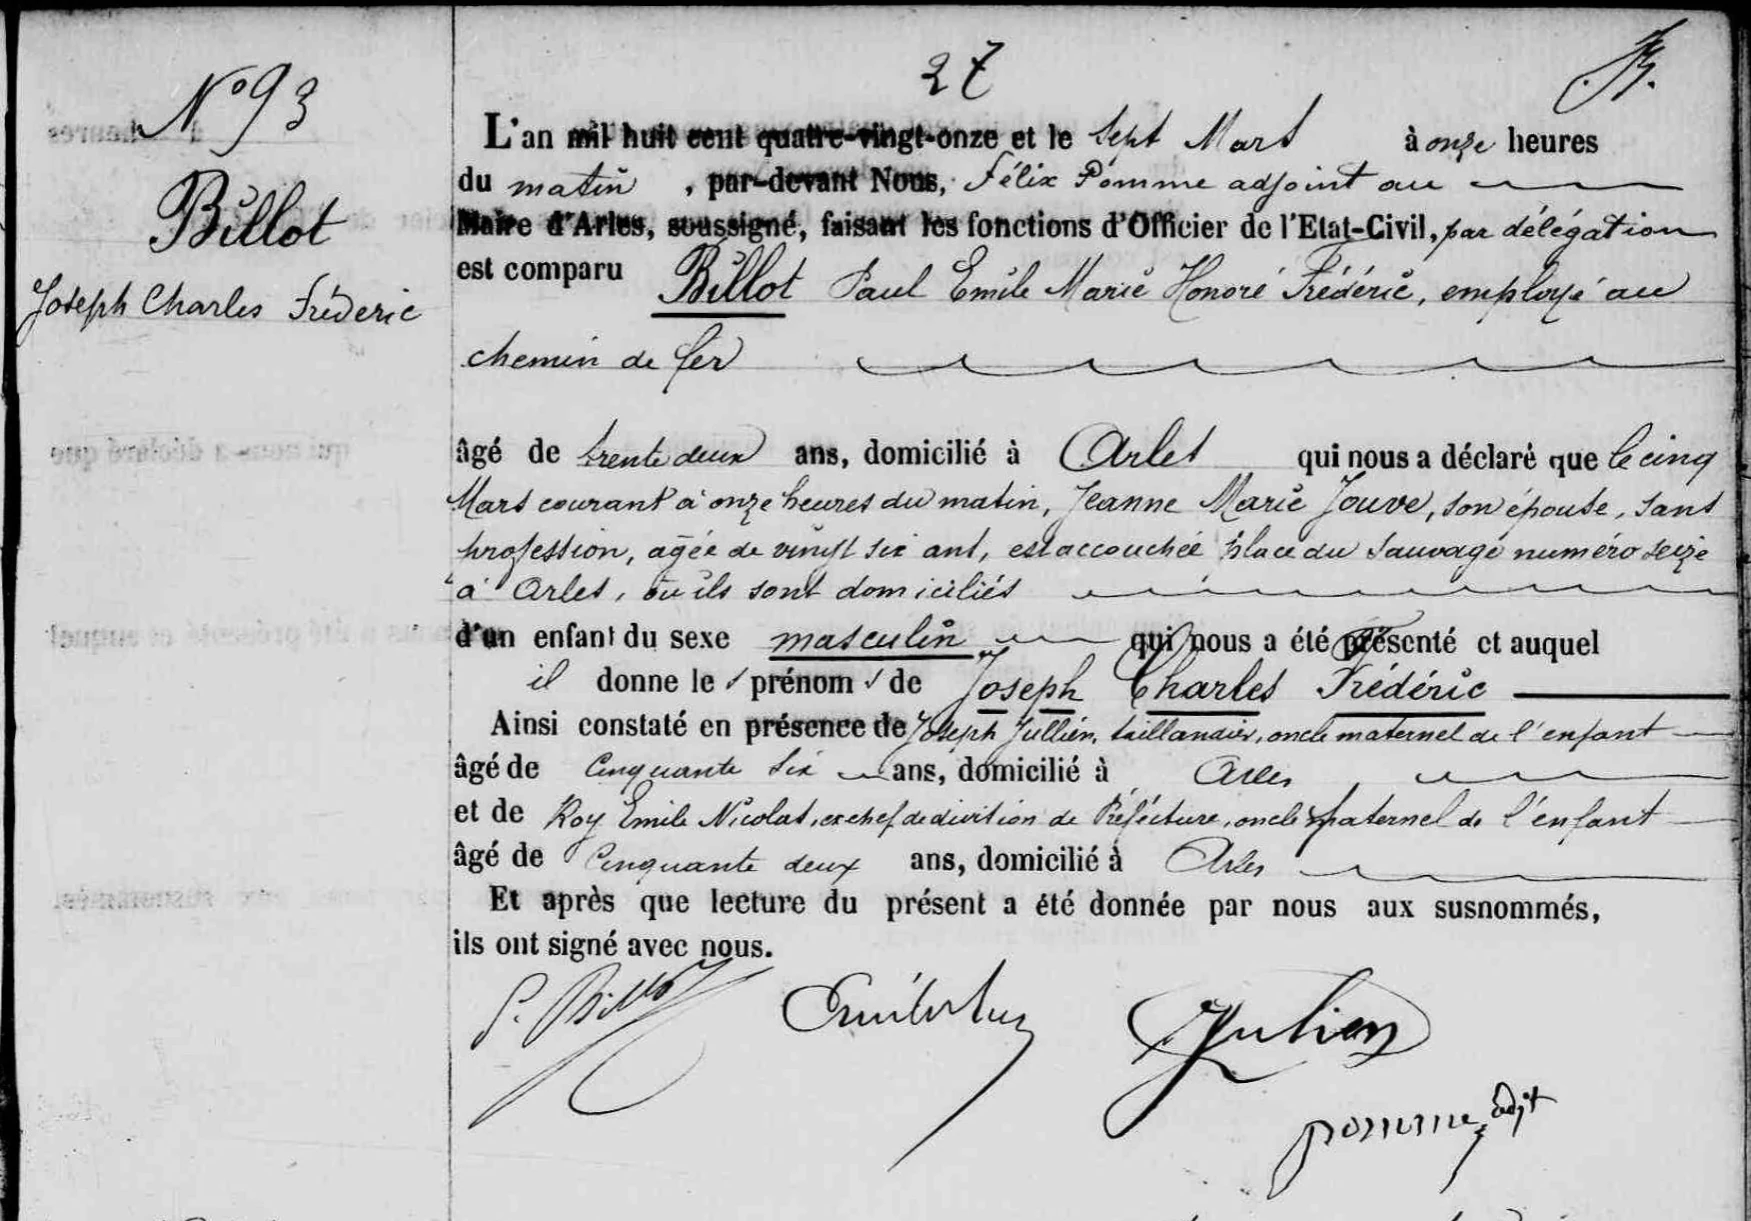 27
N° 93
Billot
Joseph Charles Fréderic
L'an mil huit cent quatre-vingt-onze et le sept Mars à onze heures
du matin, par-devant Nous, Félix Pomme adjoint au
Maire d'Arles, soussigné, faisant les fonctions d'Officier de l'Etat-Civil, par délégation
est comparu Billot Paul Emile Marie Honoré Frédéric, employé au
chemin de fer
âgé de trente deux ans, domicilié à Arles qui nous a déclaré que le cinq
Mars courant à onze heures du matin, Jeanne Marie Jouve, son épouse, sans
profession, agée de vingt six ans, est accouchée place du Sauvage numéro seize
à Arles, où ils sont domiciliés
d'un enfant du sexe masculin qui nous a été présenté et auquel
il donne le s prénom s de Joseph Charles Frédéric
Ainsi constaté en présence de Joseph Jullien, taillandier, oncle maternel de l'enfant
âgé de Cinquante six ans, domicilié à Arles
et de Roy Emile Nicolas, ex chef de division de Préfecture, oncle paternel de l'enfant
âgé de Cinquante deux ans, domicilié à Arles
Et après que lecture du présent a été donnée par nous aux susnommés,
ils ont signé avec nous.
P. Billot
Jullien
pomme adjt